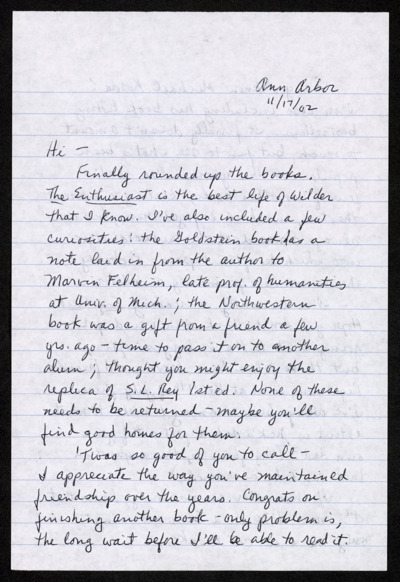 Ann Arbor
11/17/02
Hi —
Finally rounded up the books.
The Enthusiast is the best life of Wilder
that I know. I've also included a few
curiosities: the Goldstein book has a
note laid in from the author to
Marvin Felheim, late prof. of humanities
at Univ. of Mich.; the Northwestern
book was a gift from a friend a few
yrs. ago – time to pass it on to another
alum; thought you might enjoy the
replica of S.L. Rey 1st ed. None of these
needs to be returned – maybe you'll
find good homes for them.
'Twas so good of you to call –
I appreciate the way you've maintained
friendship over the years. Congrats on
finishing another book – only problem is,
the long wait before I'll be able to read it.